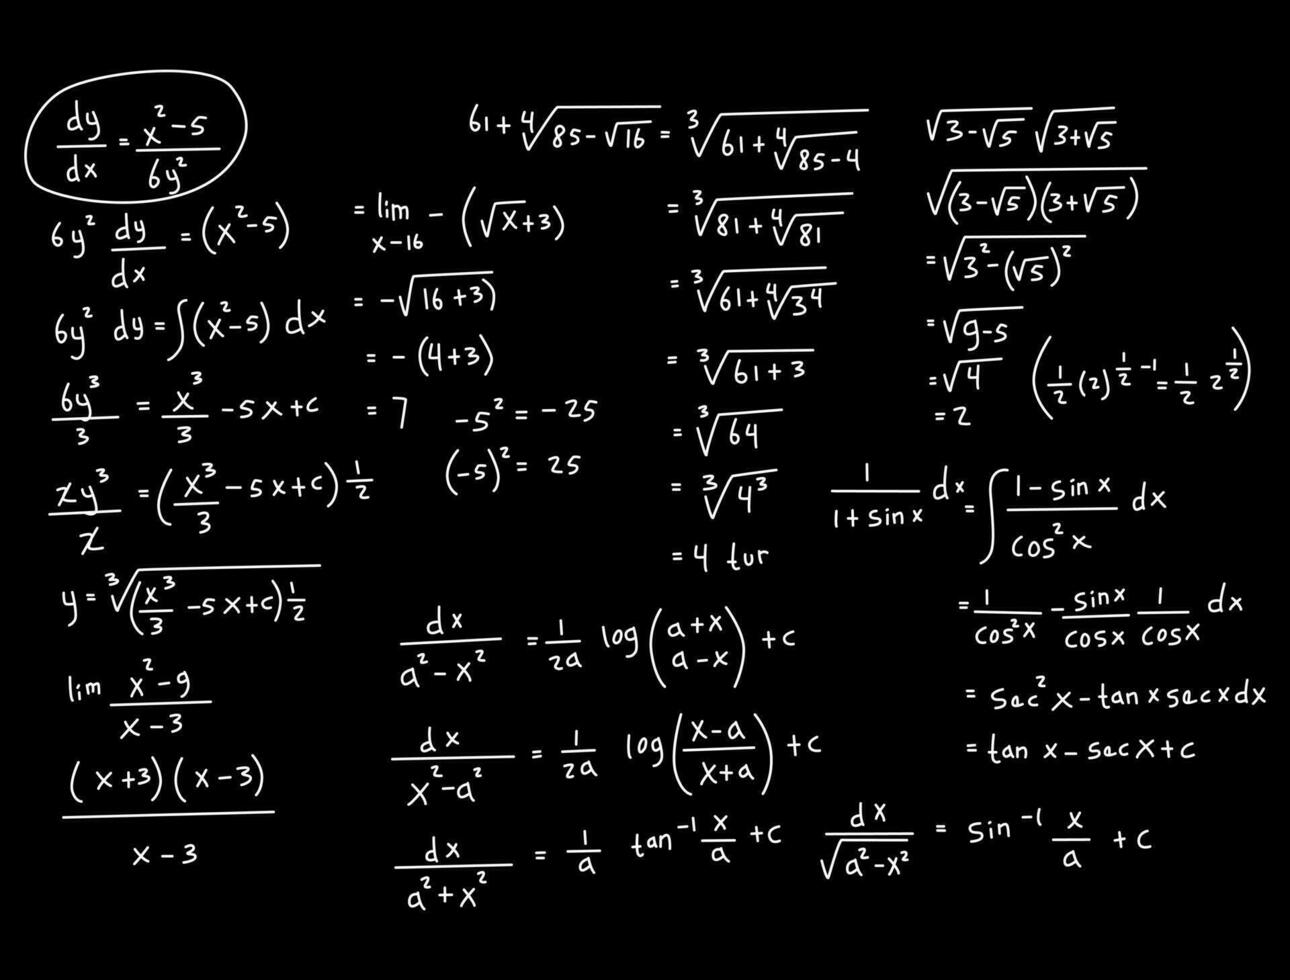 dy/dx = x²-5/6y²
6y² dy/dx = (x²-5)
6y² dy = ∫(x²-5) dx
6y³/3 = x³/3 -5x+c
zy³/z = (x³/3 -5x+c) 1/2
y = ∛(x³/3 -5x+c) 1/2
lim x²-9/x-3
(x+3)(x-3)/x-3
= lim x-16 - (√x+3)
= -√16+3)
= - (4+3)
= 7
-5² = -25
(-5)² = 25
61+∜85-√16 = ∛61+∜85-4
= ∛81+∜81
= ∛61+∜3⁴
= ∛61+3
= ∛64
= ∛4³
= 4 tur
√3-√5 √3+√5
√(3-√5)(3+√5)
= √3²-(√5)²
= √9-5
= √4
= 2
(1/2 (2)^1/2 -1 = 1/2 2^1/2)
1/1+sin x dx = ∫ 1-sin x/cos² x dx
= 1/cos²x - sinx/cosx 1/cosx dx
= sec² x - tan x sec x dx
= tan x - sec x + c
dx/a²-x² = 1/2a log (a+x a-x) + c
dx/x²-a² = 1/2a log (x-a/x+a) + c
dx/a²+x² = 1/a tan⁻¹ x/a + c
dx/√a²-x² = sin⁻¹ x/a + c